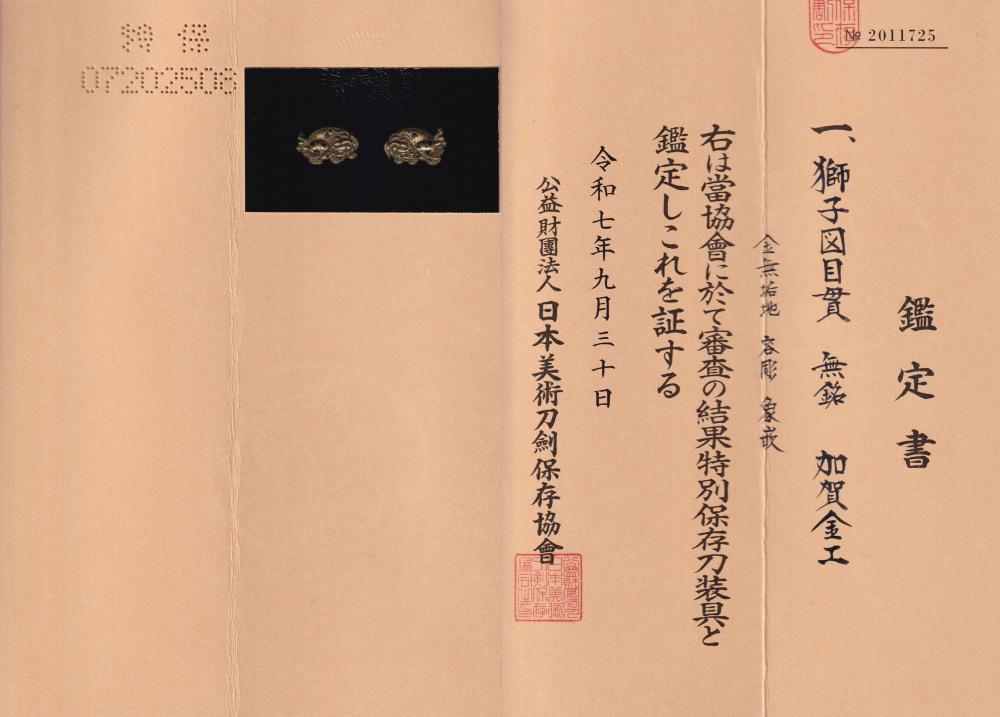 № 2011725
鑑定書
一、獅子図目貫 無銘 加賀金工
金無垢地 容彫 象嵌
右は當協會に於て審査の結果特別保存刀装具と
鑑定しこれを証する
令和七年九月三十日
公益財團法人 日本美術刀劍保存協會
特保
07202506